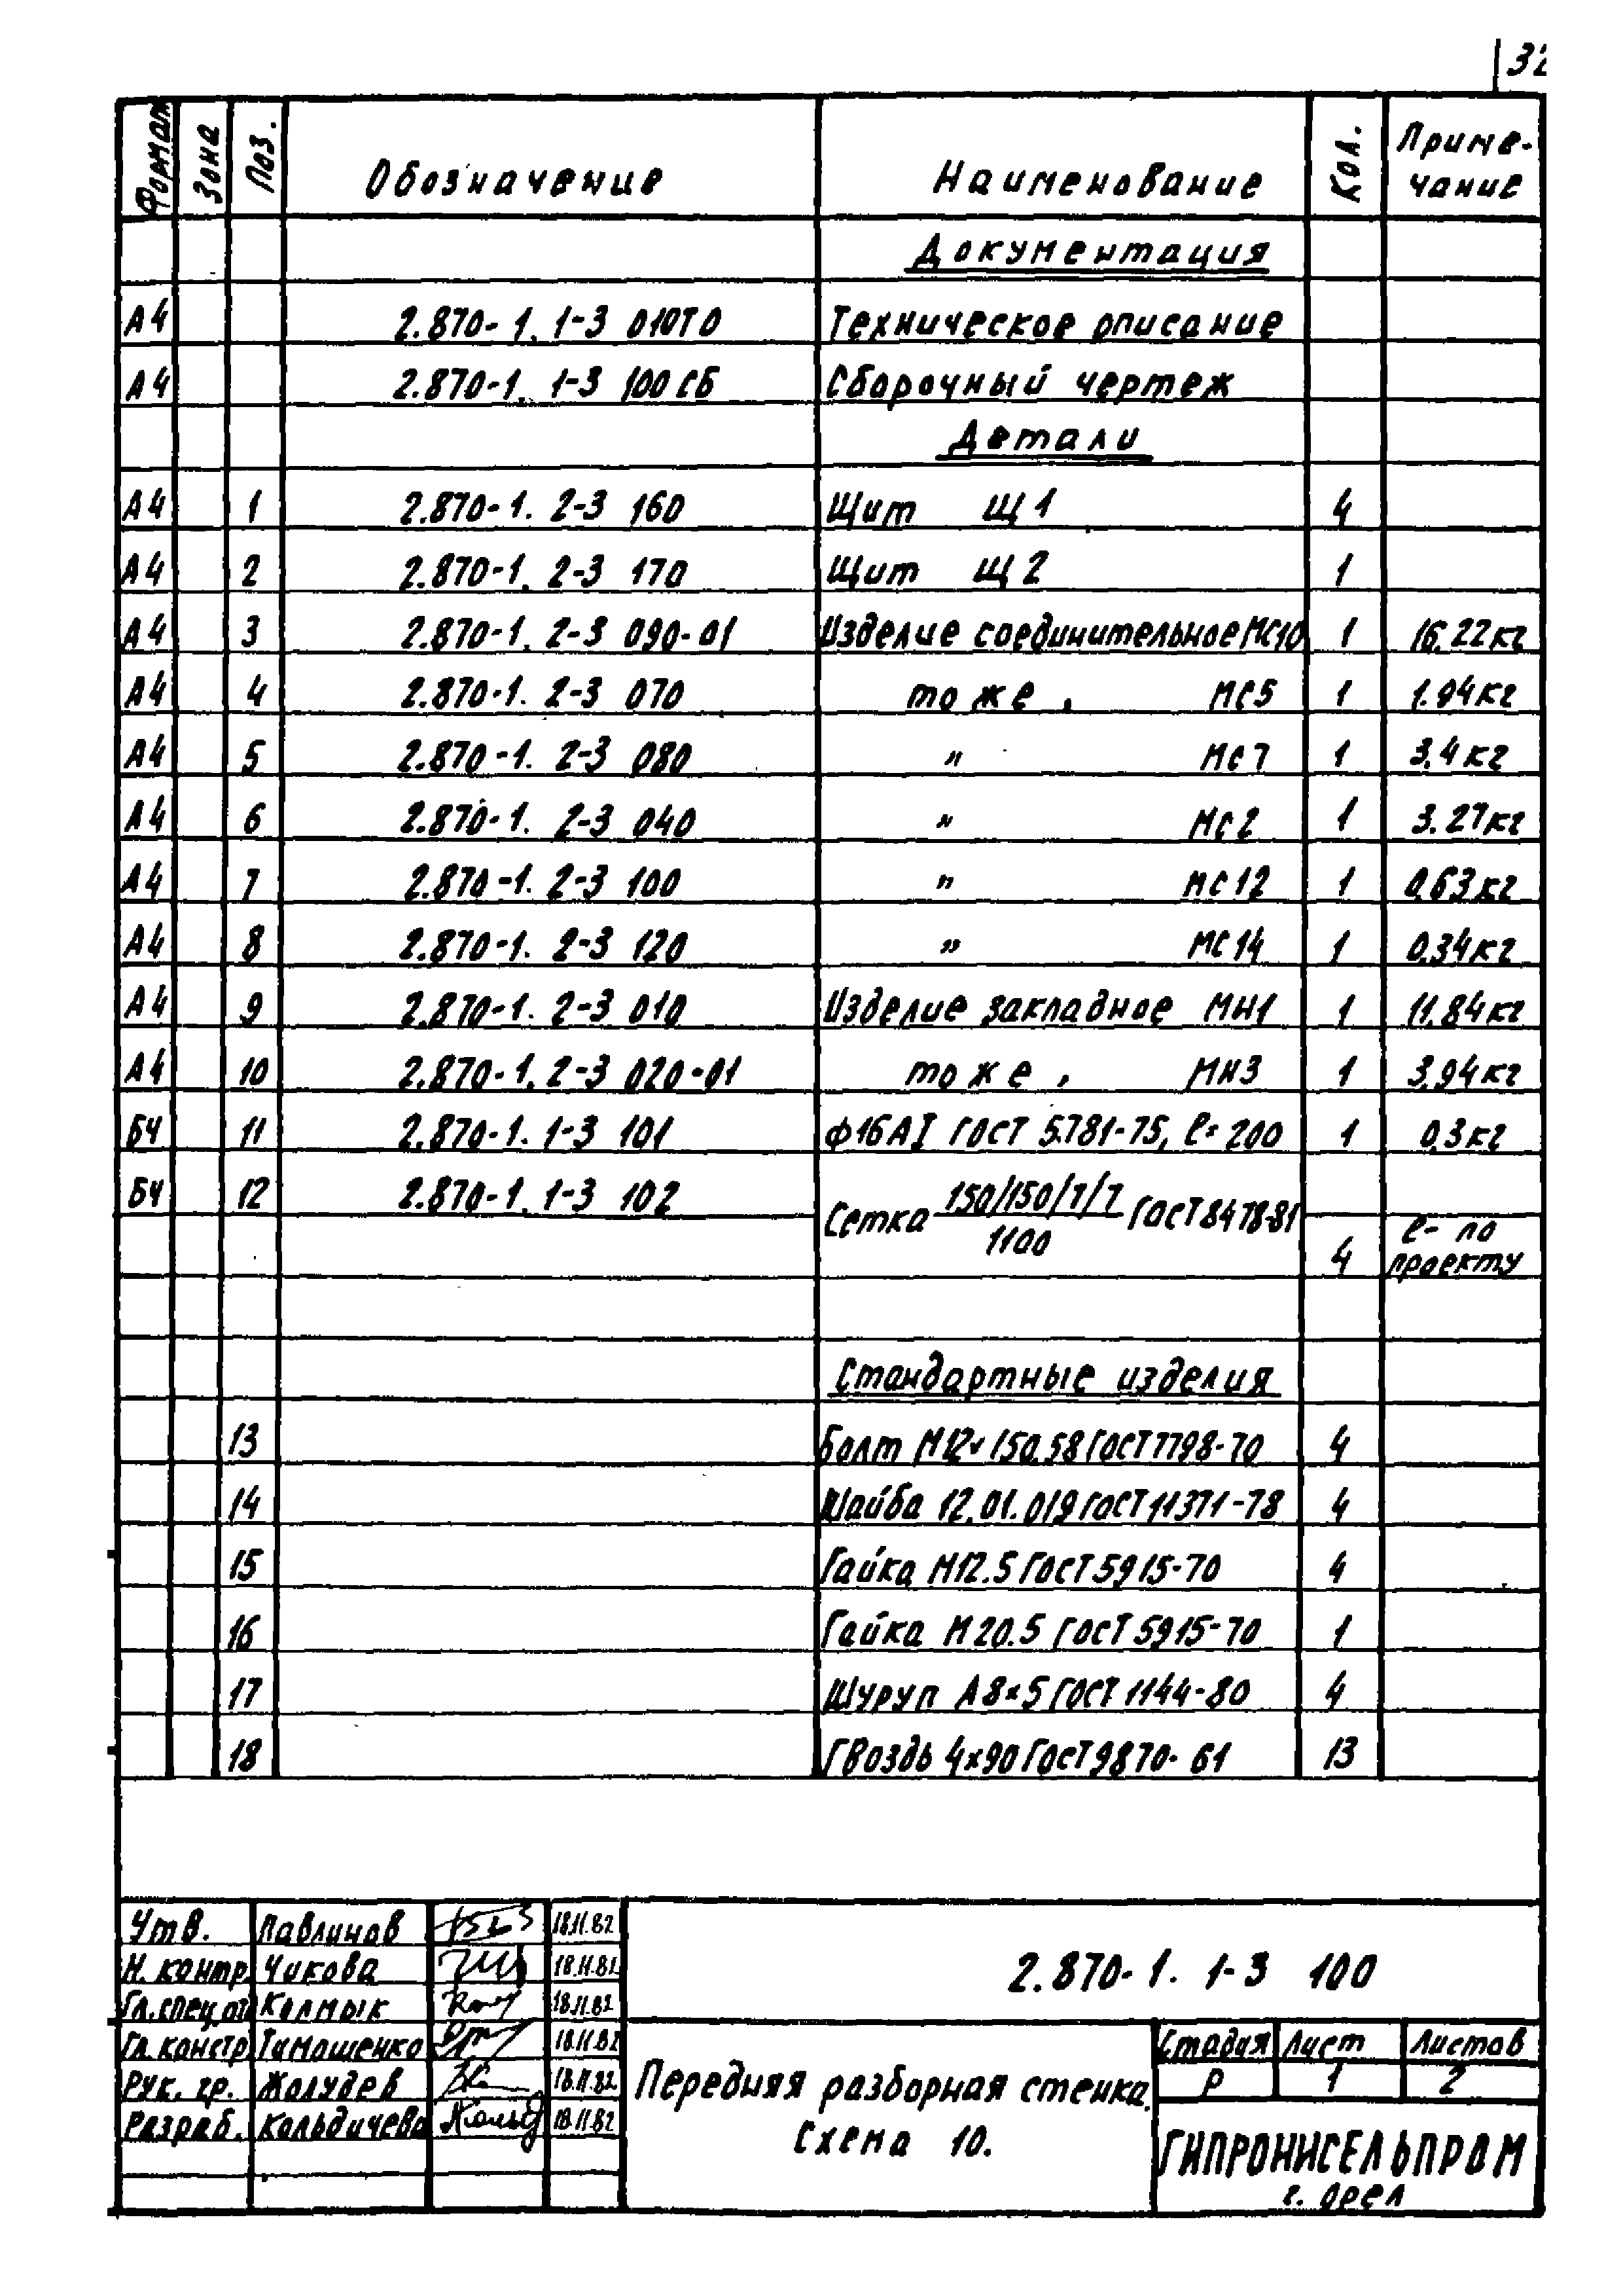 32
Формат Зона Поз. Обозначение Наименование Кол. Приме-
чание
Документация
А4 2.870-1. 1-3 010ТО Техническое описание
А4 2.870-1. 1-3 100 СБ Сборочный чертеж
Детали
А4 1 2.870-1. 2-3 160 Щит Щ1 4
А4 2 2.870-1. 2-3 170 Щит Щ2 1
А4 3 2.870-1. 2-3 090-01 Изделие соединительное МС10 1 16.22кг
А4 4 2.870-1. 2-3 070 тоже, МС5 1 1.94кг
А4 5 2.870-1. 2-3 080 " МС7 1 3.4кг
А4 6 2.870-1. 2-3 040 " МС2 1 3.27кг
А4 7 2.870-1. 2-3 100 " МС12 1 0.63кг
А4 8 2.870-1. 2-3 120 " МС14 1 0.34кг
А4 9 2.870-1. 2-3 010 Изделие закладное МН1 1 11.84кг
А4 10 2.870-1. 2-3 020-01 тоже, МН3 1 3.94кг
БЧ 11 2.870-1. 1-3 101 ф16АI ГОСТ 5.781-75, ℓ=200 1 0.3кг
БЧ 12 2.870-1. 1-3 102 Сетка 150/150/7/7 ГОСТ 8478-81
1100 4 ℓ- по
проекту
Стандартные изделия
13 Болт М12х150.58 ГОСТ 7798-70 4
14 Шайба 12.01.019 ГОСТ 11371-78 4
15 Гайка М12.5 ГОСТ 5915-70 4
16 Гайка М20.5 ГОСТ 5915-70 1
17 Шуруп А8х5 ГОСТ 1144-80 4
18 Гвоздь 4х90 ГОСТ 9870-61 13
Утв. Павлинов 18.11.82
Н. контр. Чикова 18.11.82
Гл.спец.от Колмык 18.11.82
Гл. констр. Тимошенко 18.11.82
Рук. гр. Жолудев 18.11.82
Разраб. Кольдичева 18.11.82
2.870-1. 1-3 100
Передняя разборная стенка.
Схема 10.
Стадия Лист Листов
Р 1 2
ГИПРОНИСЕЛЬПРОМ
г. Орел